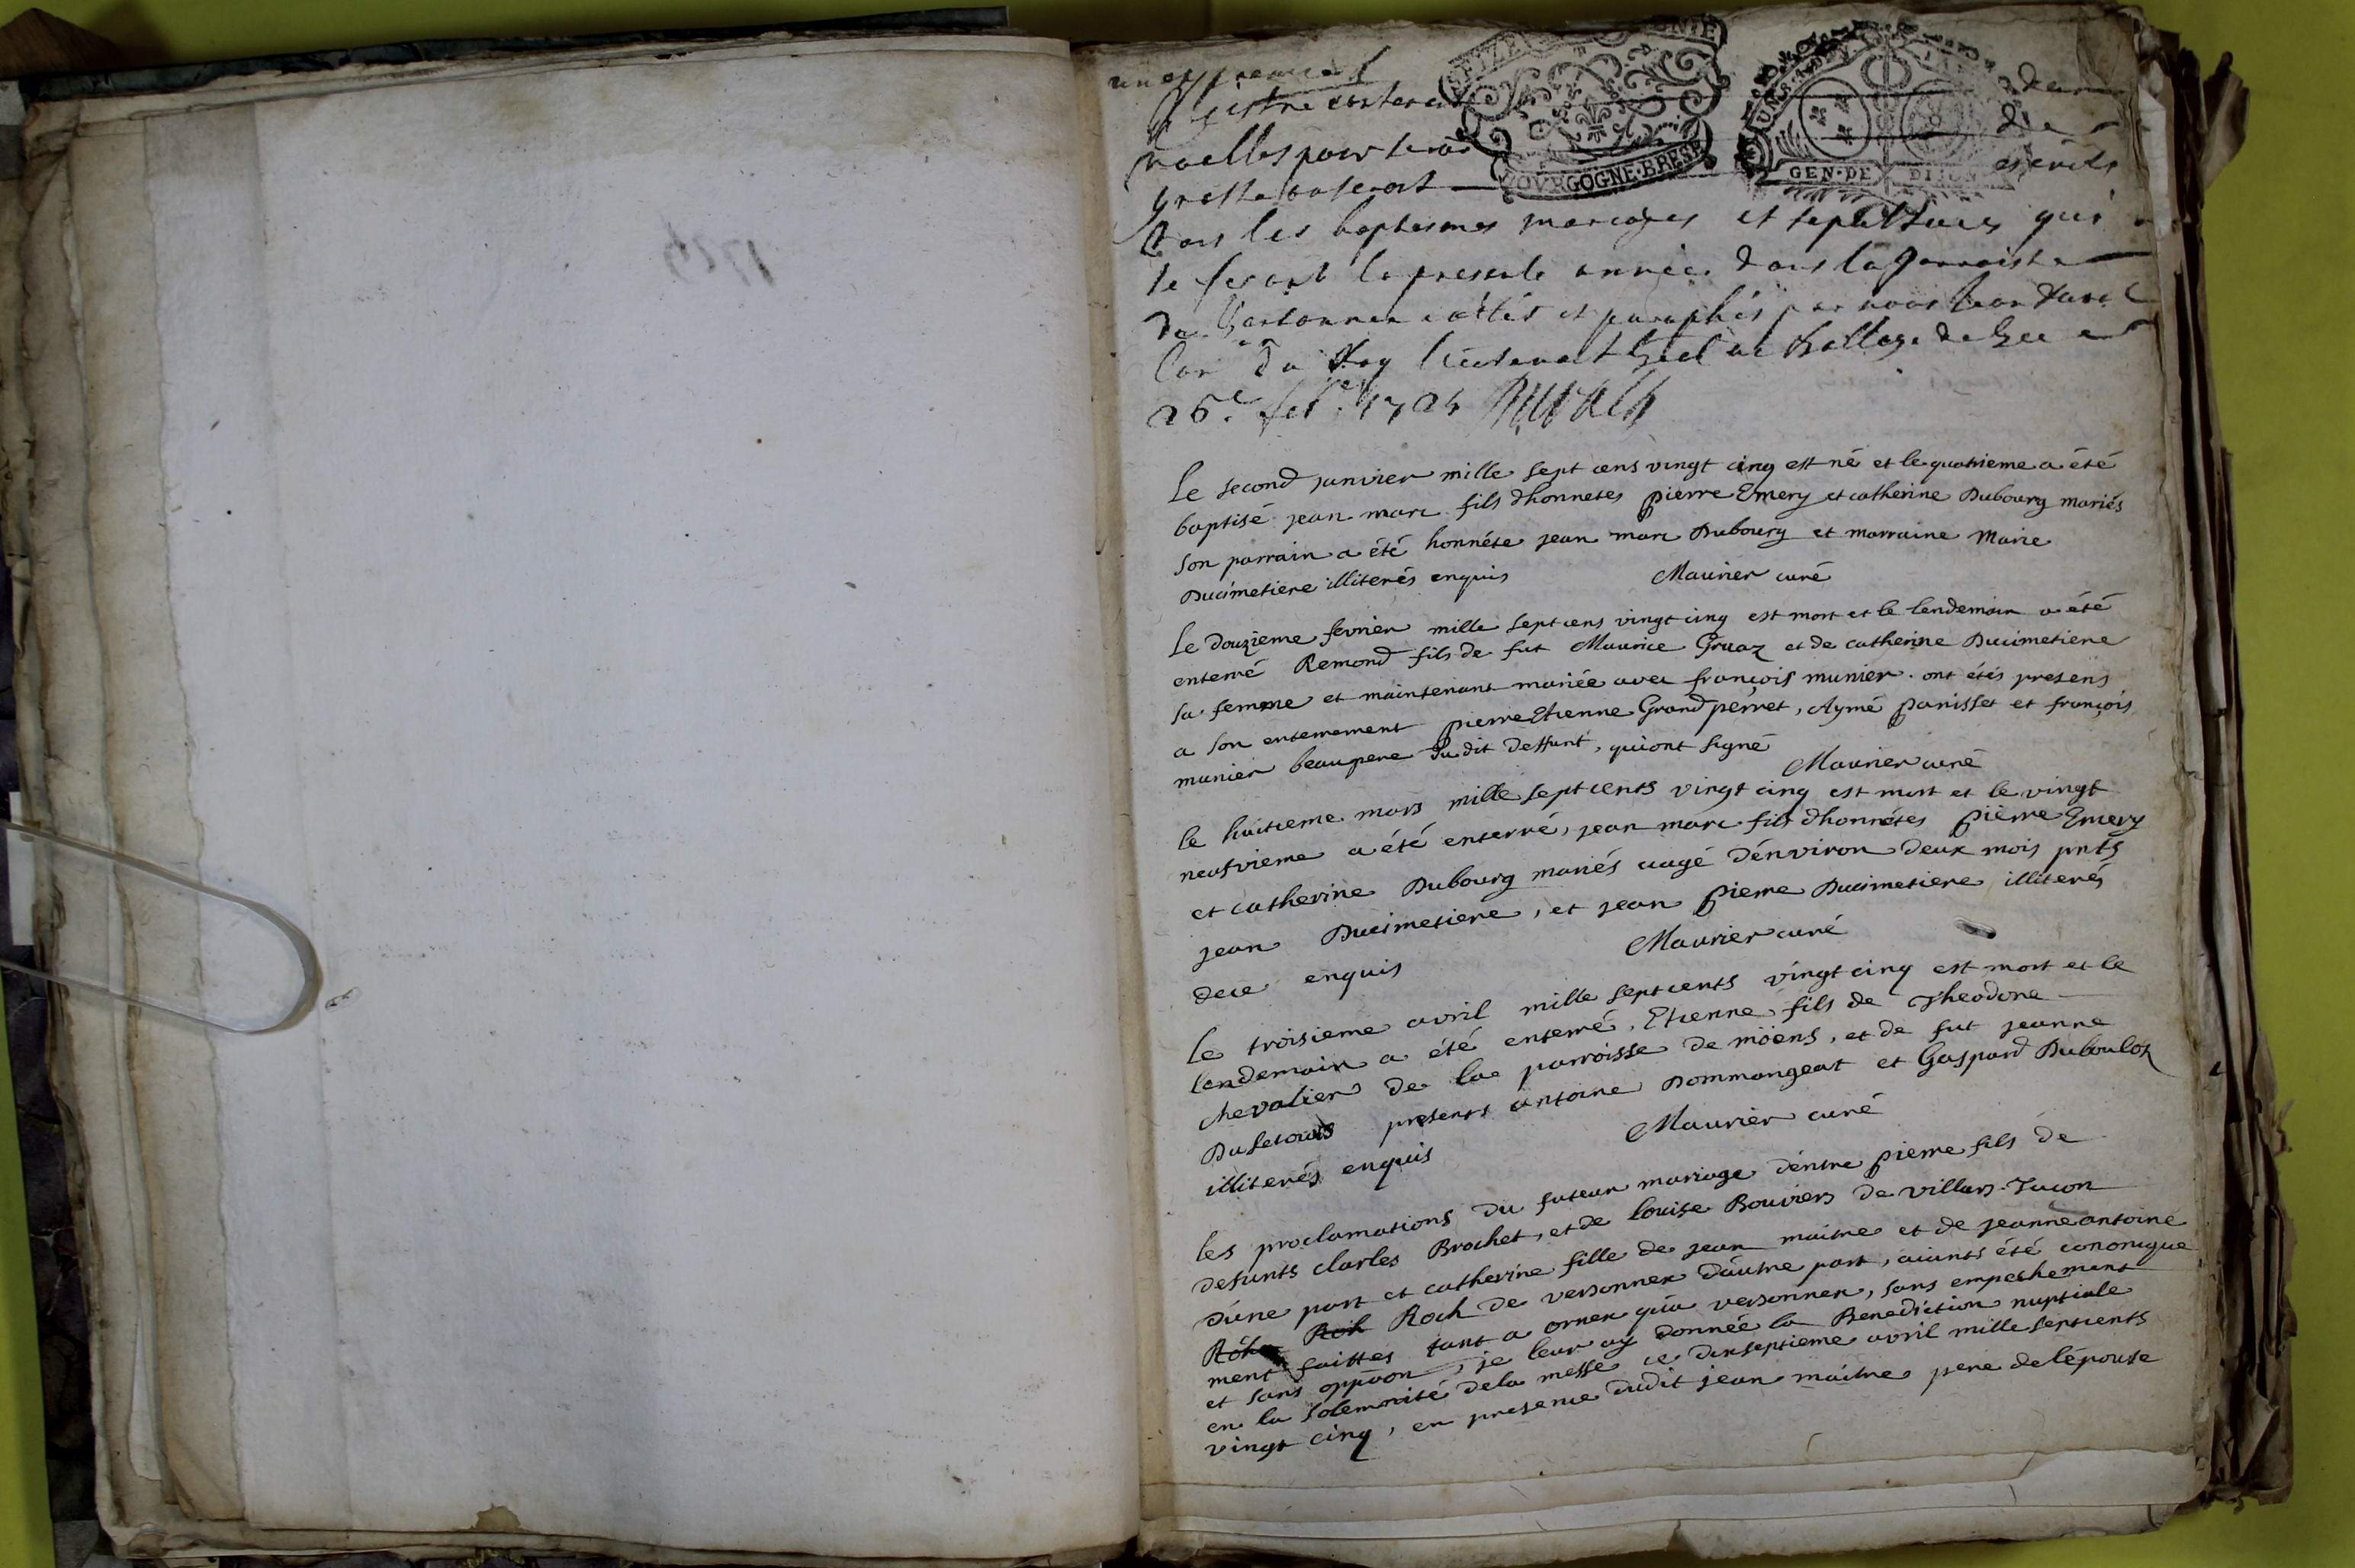 1725
un et premier
Registre contenant
nuelles pour servir
greffe
escrits
tous les baptesmes mariages et sepultures qui
se feront la presente année dans la parroisse
de Versonnex cottés et paraphés par nous
Con du Roy lieutenant gnal au balliage de Gex
26e feb. 1725
BOVRGOGNE·BRESE
GEN·DE DIJON
Le second janvier mille sept cens vingt cinq est né et le quatrieme a été
baptisé jean marc fils dhonnetes pierre Emery et catherine Dubourg mariés
son parrain a été honnéte jean marc Dubourg et marraine Marie
Ducimetiere illiterés enquis Maurier curé
Le douzieme fevrier mille sept cens vingt cinq est mort et le lendemain a été
enterré Remond fils de fut Maurice Gruaz et de catherine Ducimetiere
sa femme et maintenant mariée avec françois munier. ont étés presens
a son enterrement pierre Etienne Grandperret, Aymé panisset et françois
munier beaupere du dit deffunt, qui ont signé
Maurier curé
le huitieme mars mille sept cents vingt cinq est mort et le vingt
neufvieme a été enterré, jean marc fils dhonnétes pierre Emery
et catherine Dubourg mariés aagé d'environ deux mois pnts
jean Ducimetiere, et jean pierre Ducimetiere illiterés
dece enquis Maurier curé
le troisieme avril mille sept cents vingt cinq est mort et le
lendemain a été enterré, Etienne fils de Theodore
chevalier de la parroisse de möens, et de fut jeanne
Dusetour presents antoine Dommangeat et Gaspard Dubouloz
illiterés enquis Maurier curé
les proclamations du futeur mariage d'entre pierre fils de
defunts charles Brochet, et de louise Bouviers de villars-Tacon
d'une part et catherine fille de jean maitre et de jeanne antoine
Roch de versonnex d'autre part, aiants été canonique
ment faittes tant a ornex qu'a versonnex, sans empeshement
et sans oppaon, je leur ay donnée la Benediction nuptiale
en la solemnité de la messe ce dixseptieme avril mille sept cents
vingt cinq, en presence dudit jean maitre pere de lépouse